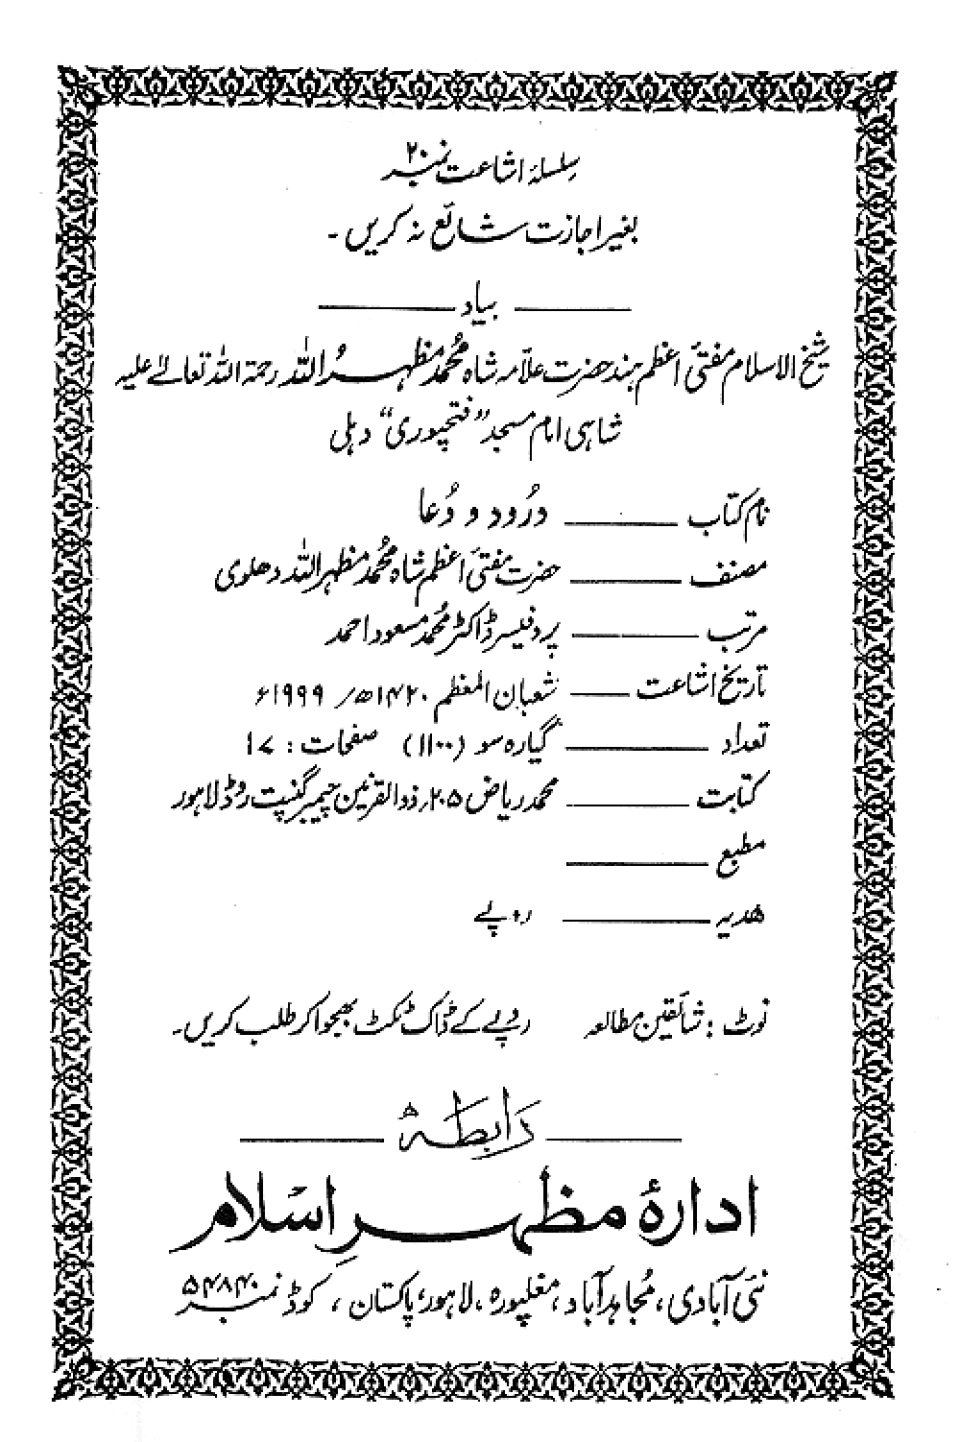 سلسلۂ اشاعت نمبر ۲۰
بغیر اجازت شائع نہ کریں ۔
بیاد
شیخ الاسلام مفتیٔ اعظم ہند حضرت علامہ شاہ محمد مظہر اللہ رحمۃ اللہ تعالےٰ علیہ
شاہی امام مسجد "فتحپوری" دہلی
نام کتاب ـــــ دُرود و دُعا
مصنف ـــــ حضرت مفتیٔ اعظم شاہ محمد مظہر اللہ دھلوی
مرتب ـــــ پروفیسر ڈاکٹر محمد مسعود احمد
تاریخ اشاعت ـــــ شعبان المعظم ۱۴۲۰ھ/ ۱۹۹۹ء
تعداد ـــــ گیارہ سو (۱۱۰۰) صفحات : ۱۷
کتابت ـــــ محمد ریاض ۲۰۵ر ذوالقرنین چیمبر گنپت روڈ لاہور
مطبع ـــــ
ھدیہ ـــــ روپے
نوٹ : شائقین مطالعہ روپے کے ڈاک ٹکٹ بھجوا کر طلب کریں ۔
رابطہ
ادارۂ مظہرِ اسلام
نئی آبادی، مُجاہد آباد، مغلپورہ، لاہور، پاکستان، کوڈ نمبر ۵۴۸۴۰